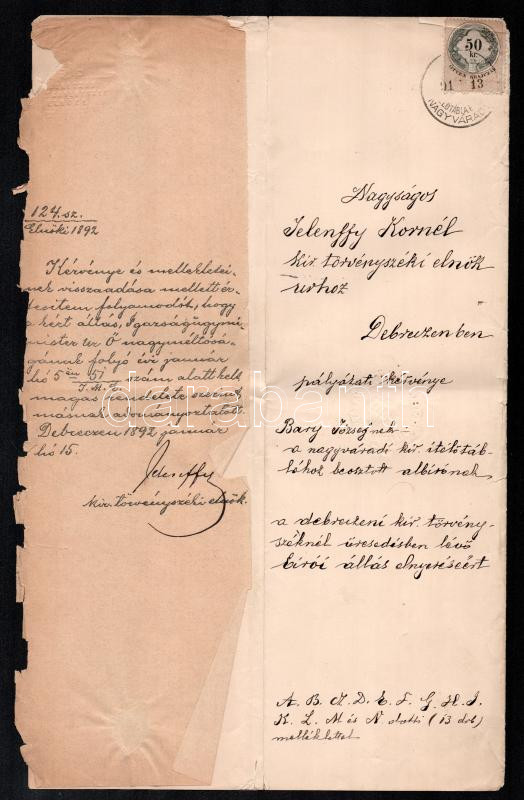 124. sz.
Elnöki 1892
Kérvénye és mellékletei-
nek visszaadása mellett ér-
tesitem folyamodót, hogy
a kért állás, Igazságügymi-
nister úr Ő nagyméltósá-
gának folyó évi január
hó 5én 51
I. M. E. szám alatt kelt
magas rendelete szerint
másnak adományoztatott.
Debreczen 1892 január
hó 15.
Jelenffy
kir. törvényszéki elnök.
50
kr.
ÖTVEN KRAJCZÁR
91 13
NAGYVÁRAD
Nagyságos
Jelenffy Kornél
kir. törvényszéki elnök
úrhoz
Debreczenben
pályázati kérvénye
Bary Józsefnek
a nagyváradi kir. itélőtáb-
lához beosztott albirónak
a debreczeni kir. törvény-
széknél üresedésben lévő
birói állás elnyeréseért
A. B. C. D. E. F. G. H. I.
K. L. M és N. alatti (13 db)
melléklettel
darabanth